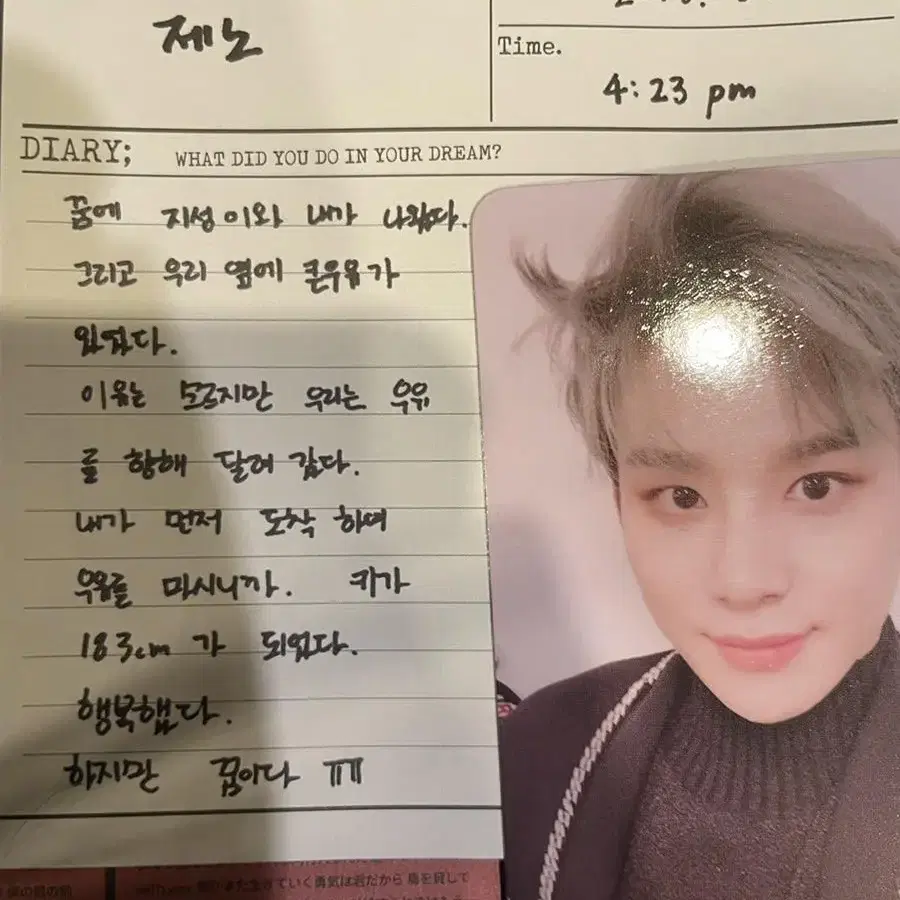 제노
Time.
4:23 pm
DIARY; WHAT DID YOU DO IN YOUR DREAM?
꿈에 지성이와 내가 나왔다.
그리고 우리 옆에 큰우유가
있었다.
이유는 모르지만 우리는 우유
를 향해 달려 갔다.
내가 먼저 도착 하여
우유를 마시니까. 키가
183cm 가 되었다.
행복했다.
하지만 꿈이다 ㅠㅠ
きていく勇気は君だから 肩を貸して